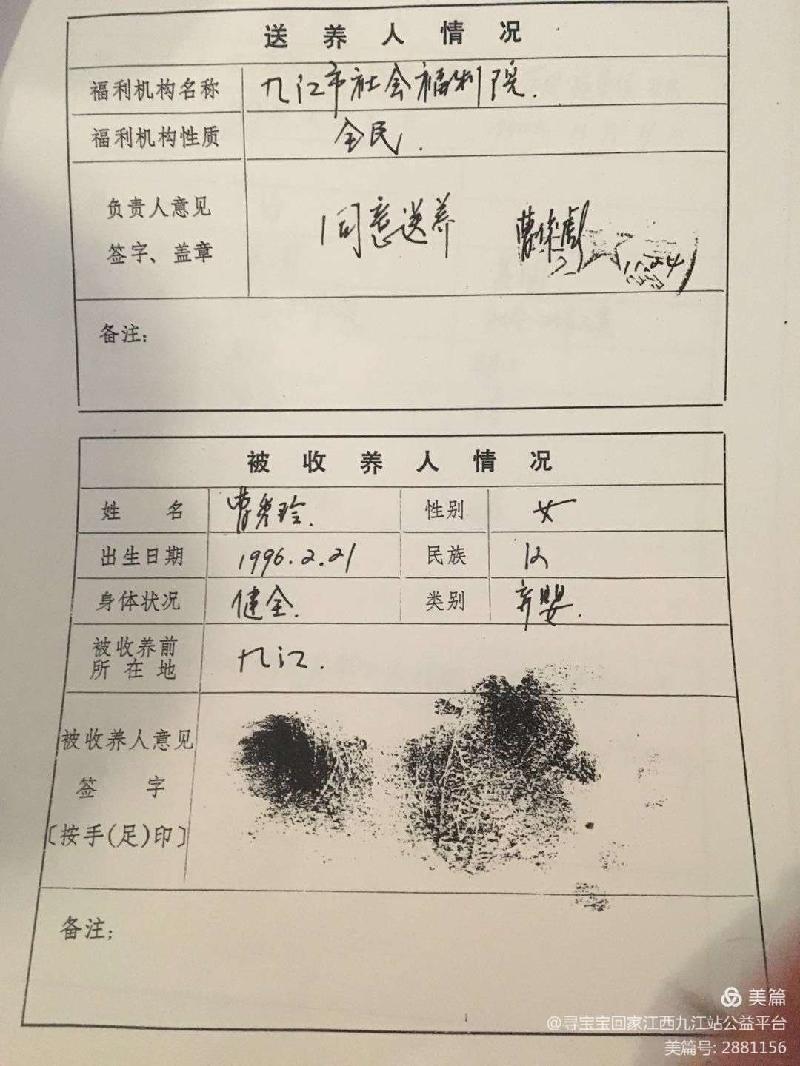 送养人情况
福利机构名称 九江市社会福利院.
福利机构性质 全民.
负责人意见
签字、盖章
同意送养
备注:
被收养人情况
姓名 曹秀玲. 性别 女
出生日期 1996.2.21 民族 汉
身体状况 健全. 类别 弃婴.
被收养前
所在地
九江.
被收养人意见
签字
〔按手(足)印〕
备注;
美篇
@寻宝宝回家江西九江站公益平台
美篇号: 2881156